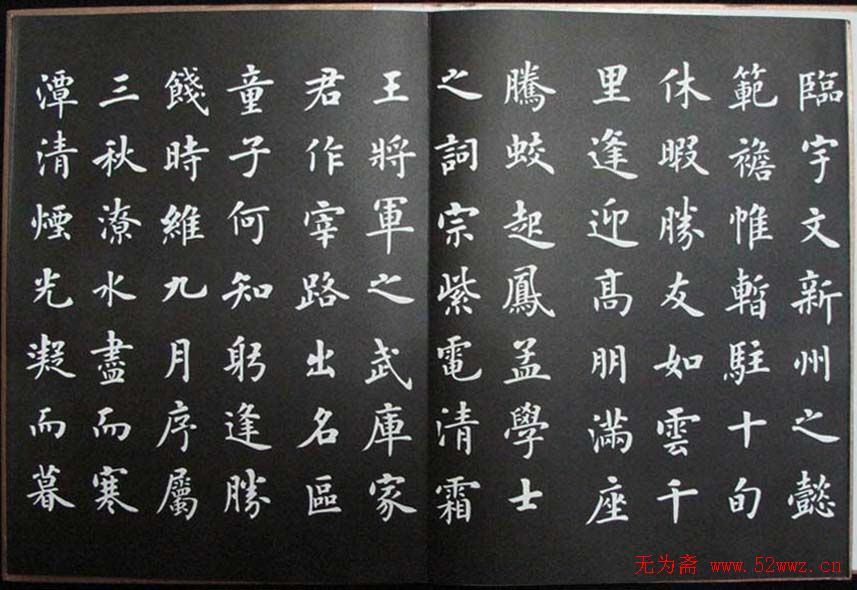 臨宇文新州之懿
範襜帷暫駐十旬
休暇勝友如雲千
里逢迎高朋滿座
騰蛟起鳳孟學士
之詞宗紫電清霜
王將軍之武庫家
君作宰路出名區
童子何知躬逢勝
餞時維九月序屬
三秋潦水盡而寒
潭清煙光凝而暮
无为斋 www.52wwz.cn